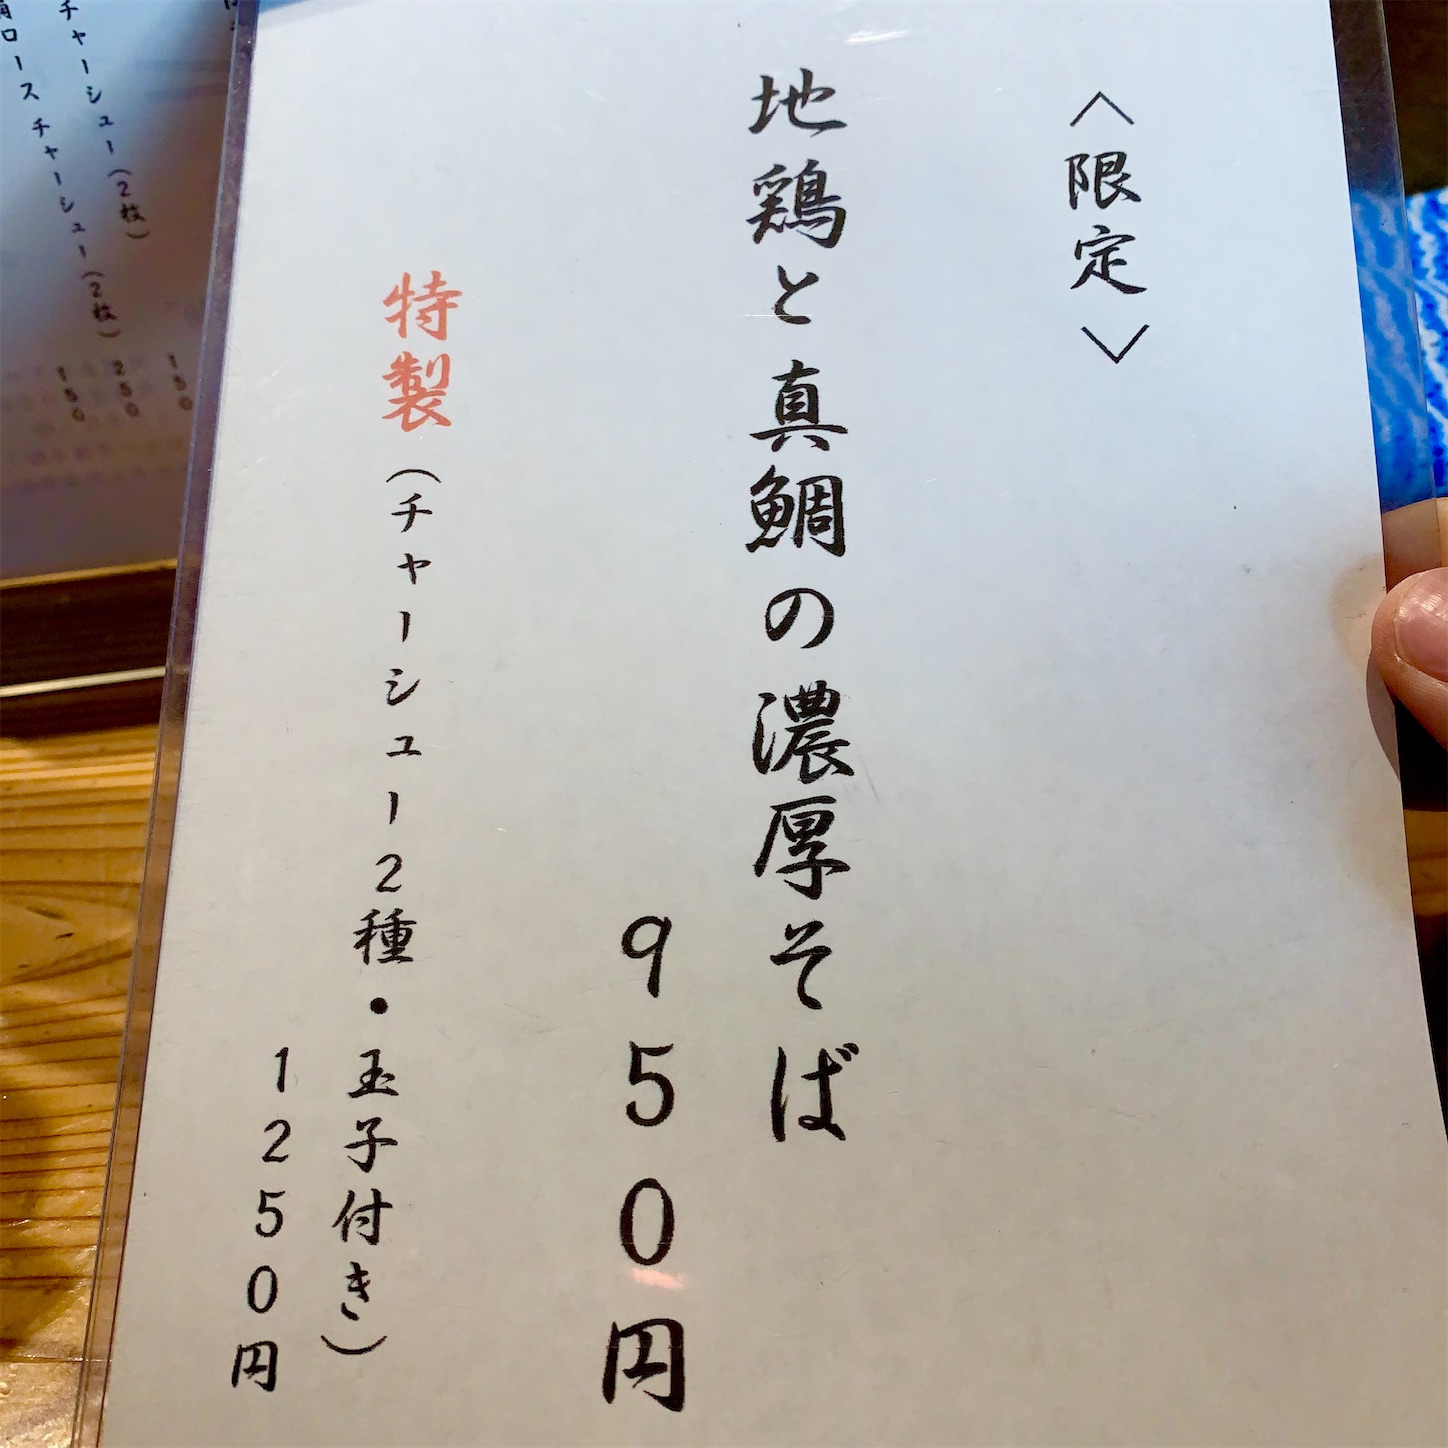 〈限定〉
地鶏と真鯛の濃厚そば
950円
特製(チャーシュー2種・玉子付き)
1250円
チャーシュー(2枚)
ロースチャーシュー(2枚)
150
250
150